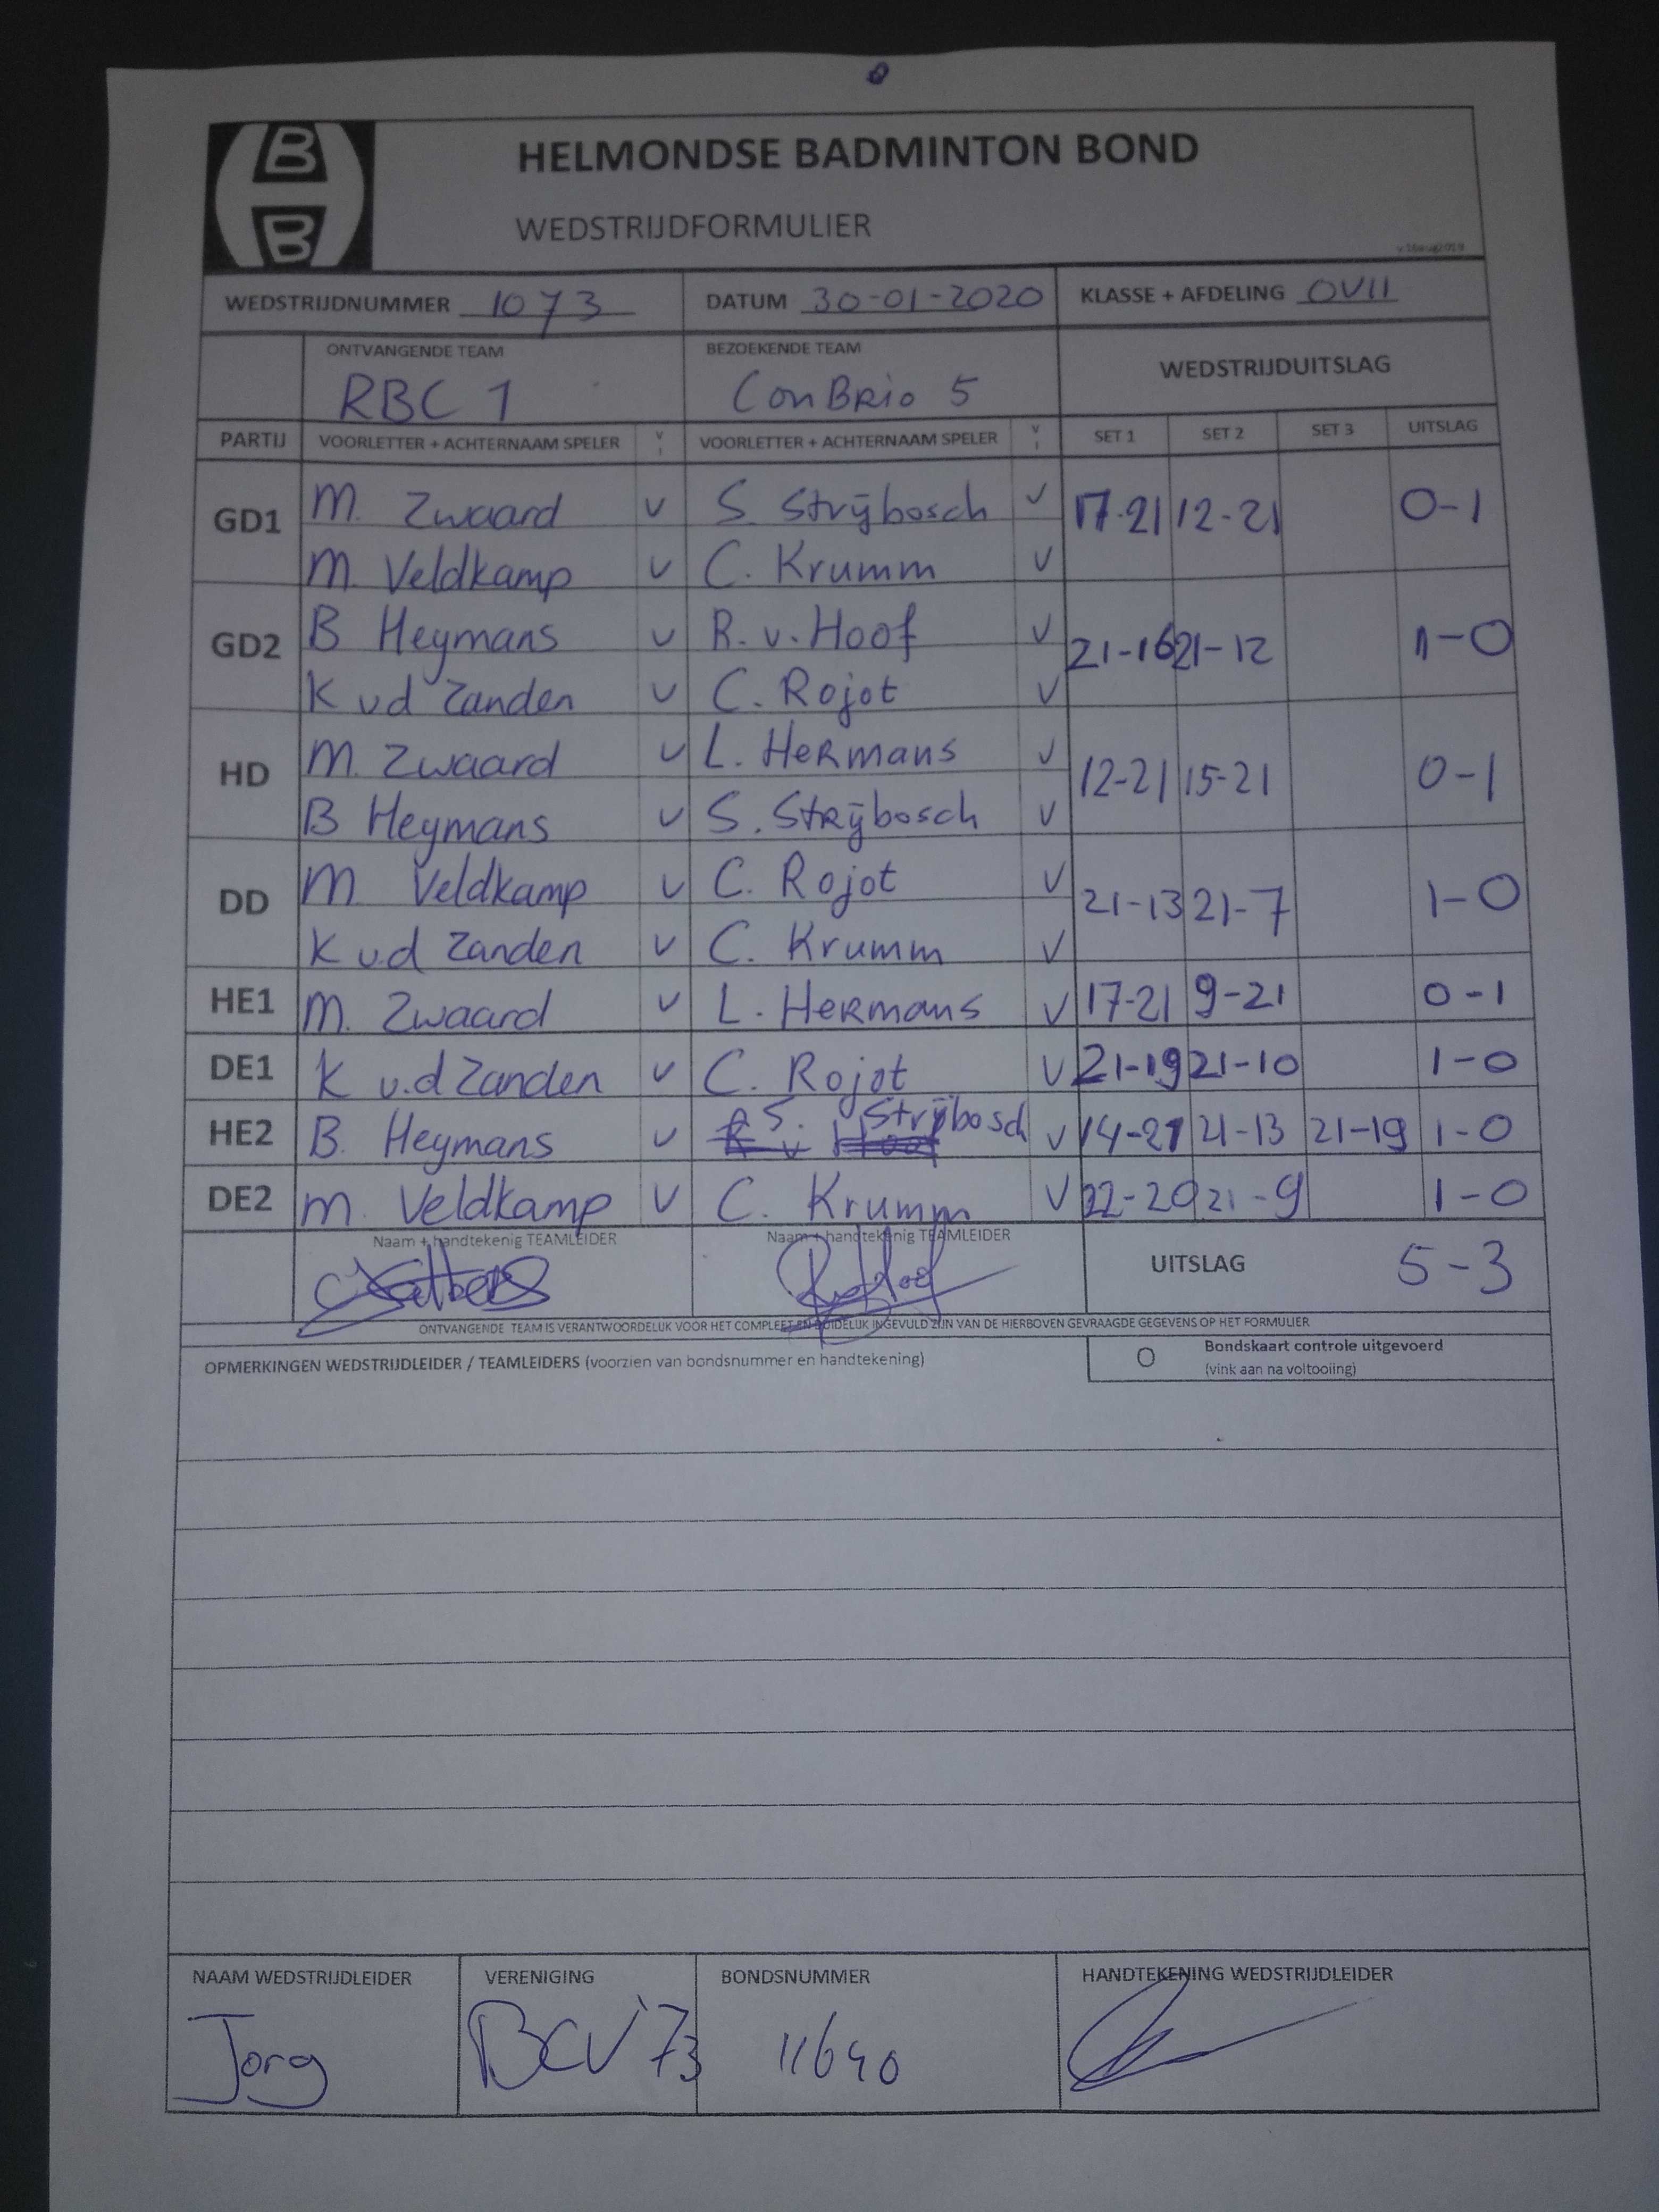 B
B
HELMONDSE BADMINTON BOND
WEDSTRIJDFORMULIER
v.18aug2019
WEDSTRIJDNUMMER 1073 DATUM 30-01-2020 KLASSE + AFDELING OVII
ONTVANGENDE TEAM BEZOEKENDE TEAM WEDSTRIJDUITSLAG
RBC 1 ConBrio 5
PARTIJ VOORLETTER + ACHTERNAAM SPELER V VOORLETTER + ACHTERNAAM SPELER V SET 1 SET 2 SET 3 UITSLAG
GD1 M. Zwaard v S. Strijbosch v 17-21 12-21 0-1
M. Veldkamp v C. Krumm v
GD2 B Heymans v R. v. Hoof v 21-16 21-12 1-0
K vd Zanden v C. Rojot v
HD M. Zwaard v L. Hermans v 12-21 15-21 0-1
B Heymans v S. Strijbosch v
DD M Veldkamp v C. Rojot v 21-13 21-7 1-0
K v.d Zanden v C. Krumm v
HE1 M. Zwaard v L. Hermans v 17-21 9-21 0-1
DE1 K v.d Zanden v C. Rojot v 21-19 21-10 1-0
HE2 B. Heymans v S. Strijbosch v 14-21 21-13 21-19 1-0
DE2 M. Veldkamp v C. Krumm v 22-20 21-9 1-0
Naam + handtekenig TEAMLEIDER Naam + handtekenig TEAMLEIDER
UITSLAG 5-3
ONTVANGENDE TEAM IS VERANTWOORDELIJK VOOR HET COMPLEET EN DUIDELIJK INGEVULD ZIJN VAN DE HIERBOVEN GEVRAAGDE GEGEVENS OP HET FORMULIER
OPMERKINGEN WEDSTRIJDLEIDER / TEAMLEIDERS (voorzien van bondsnummer en handtekening) O Bondskaart controle uitgevoerd
(vink aan na voltooiing)
NAAM WEDSTRIJDLEIDER VERENIGING BONDSNUMMER HANDTEKENING WEDSTRIJDLEIDER
Jorg BCV'73 11640